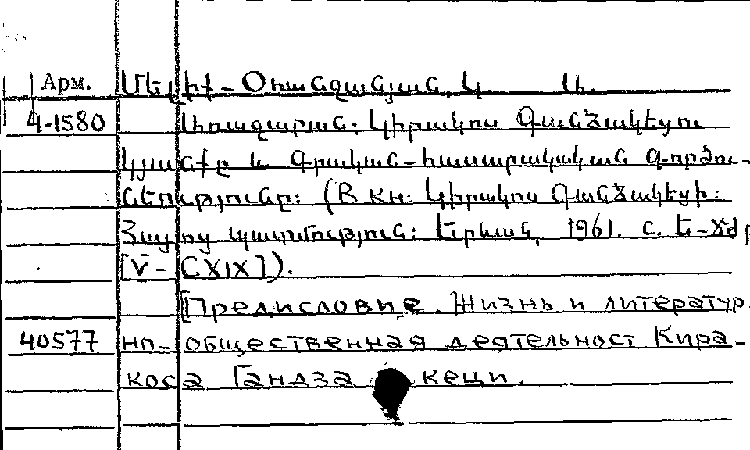 Арм. Մելիք-Օհանջանյան, Կ. Ա.
4-1580 Առաջաբան: Կիրակոս Գանձակեցու
կյանքը և գրական-հասարակական գործու-
նեությունը: (В кн: Կիրակոս Գանձակեցի:
Հայոց պատմություն: Երևան, 1961. с. Ե-ՃԺ
[V-CXIX]).
[Предисловие. Жизнь и литератур
40577 но-общественная деятельност Кира-
коса Гандза кеци.